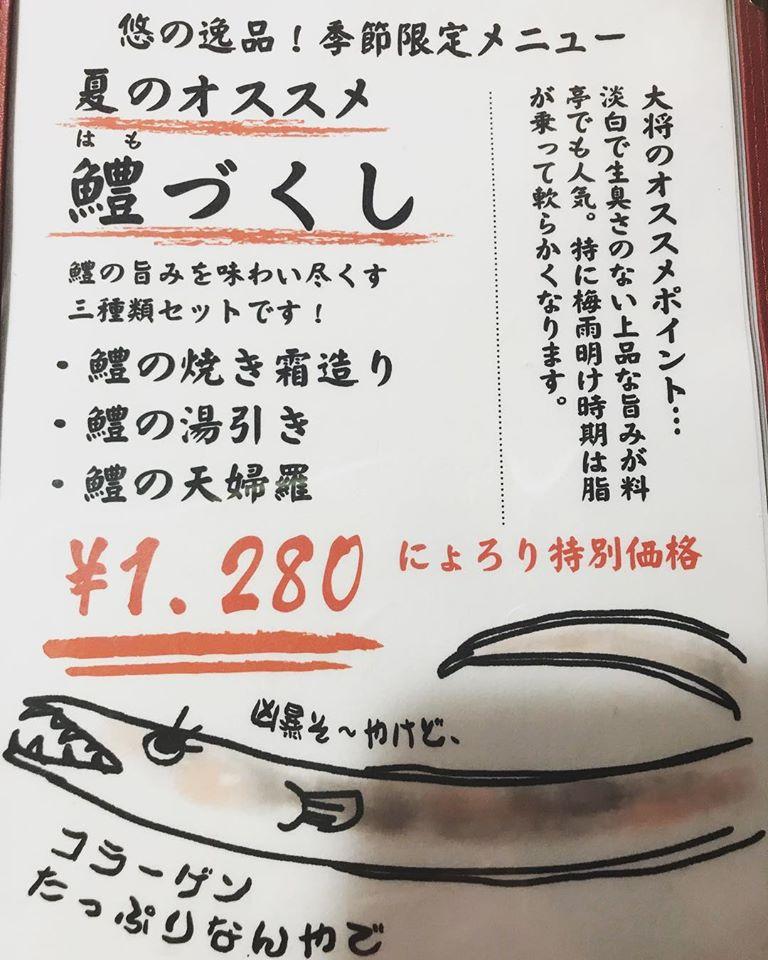 悠の逸品！季節限定メニュー
夏のオススメ
はも
鱧づくし
鱧の旨みを味わい尽くす
三種類セットです！
・鱧の焼き霜造り
・鱧の湯引き
・鱧の天婦羅
大将のオススメポイント…
淡白で生臭さのない上品な旨みが料
亭でも人気。特に梅雨明け時期は脂
が乗って軟らかくなります。
¥1.280
にょろり特別価格
凶暴そ～やけど、
コラーゲン
たっぷりなんやで